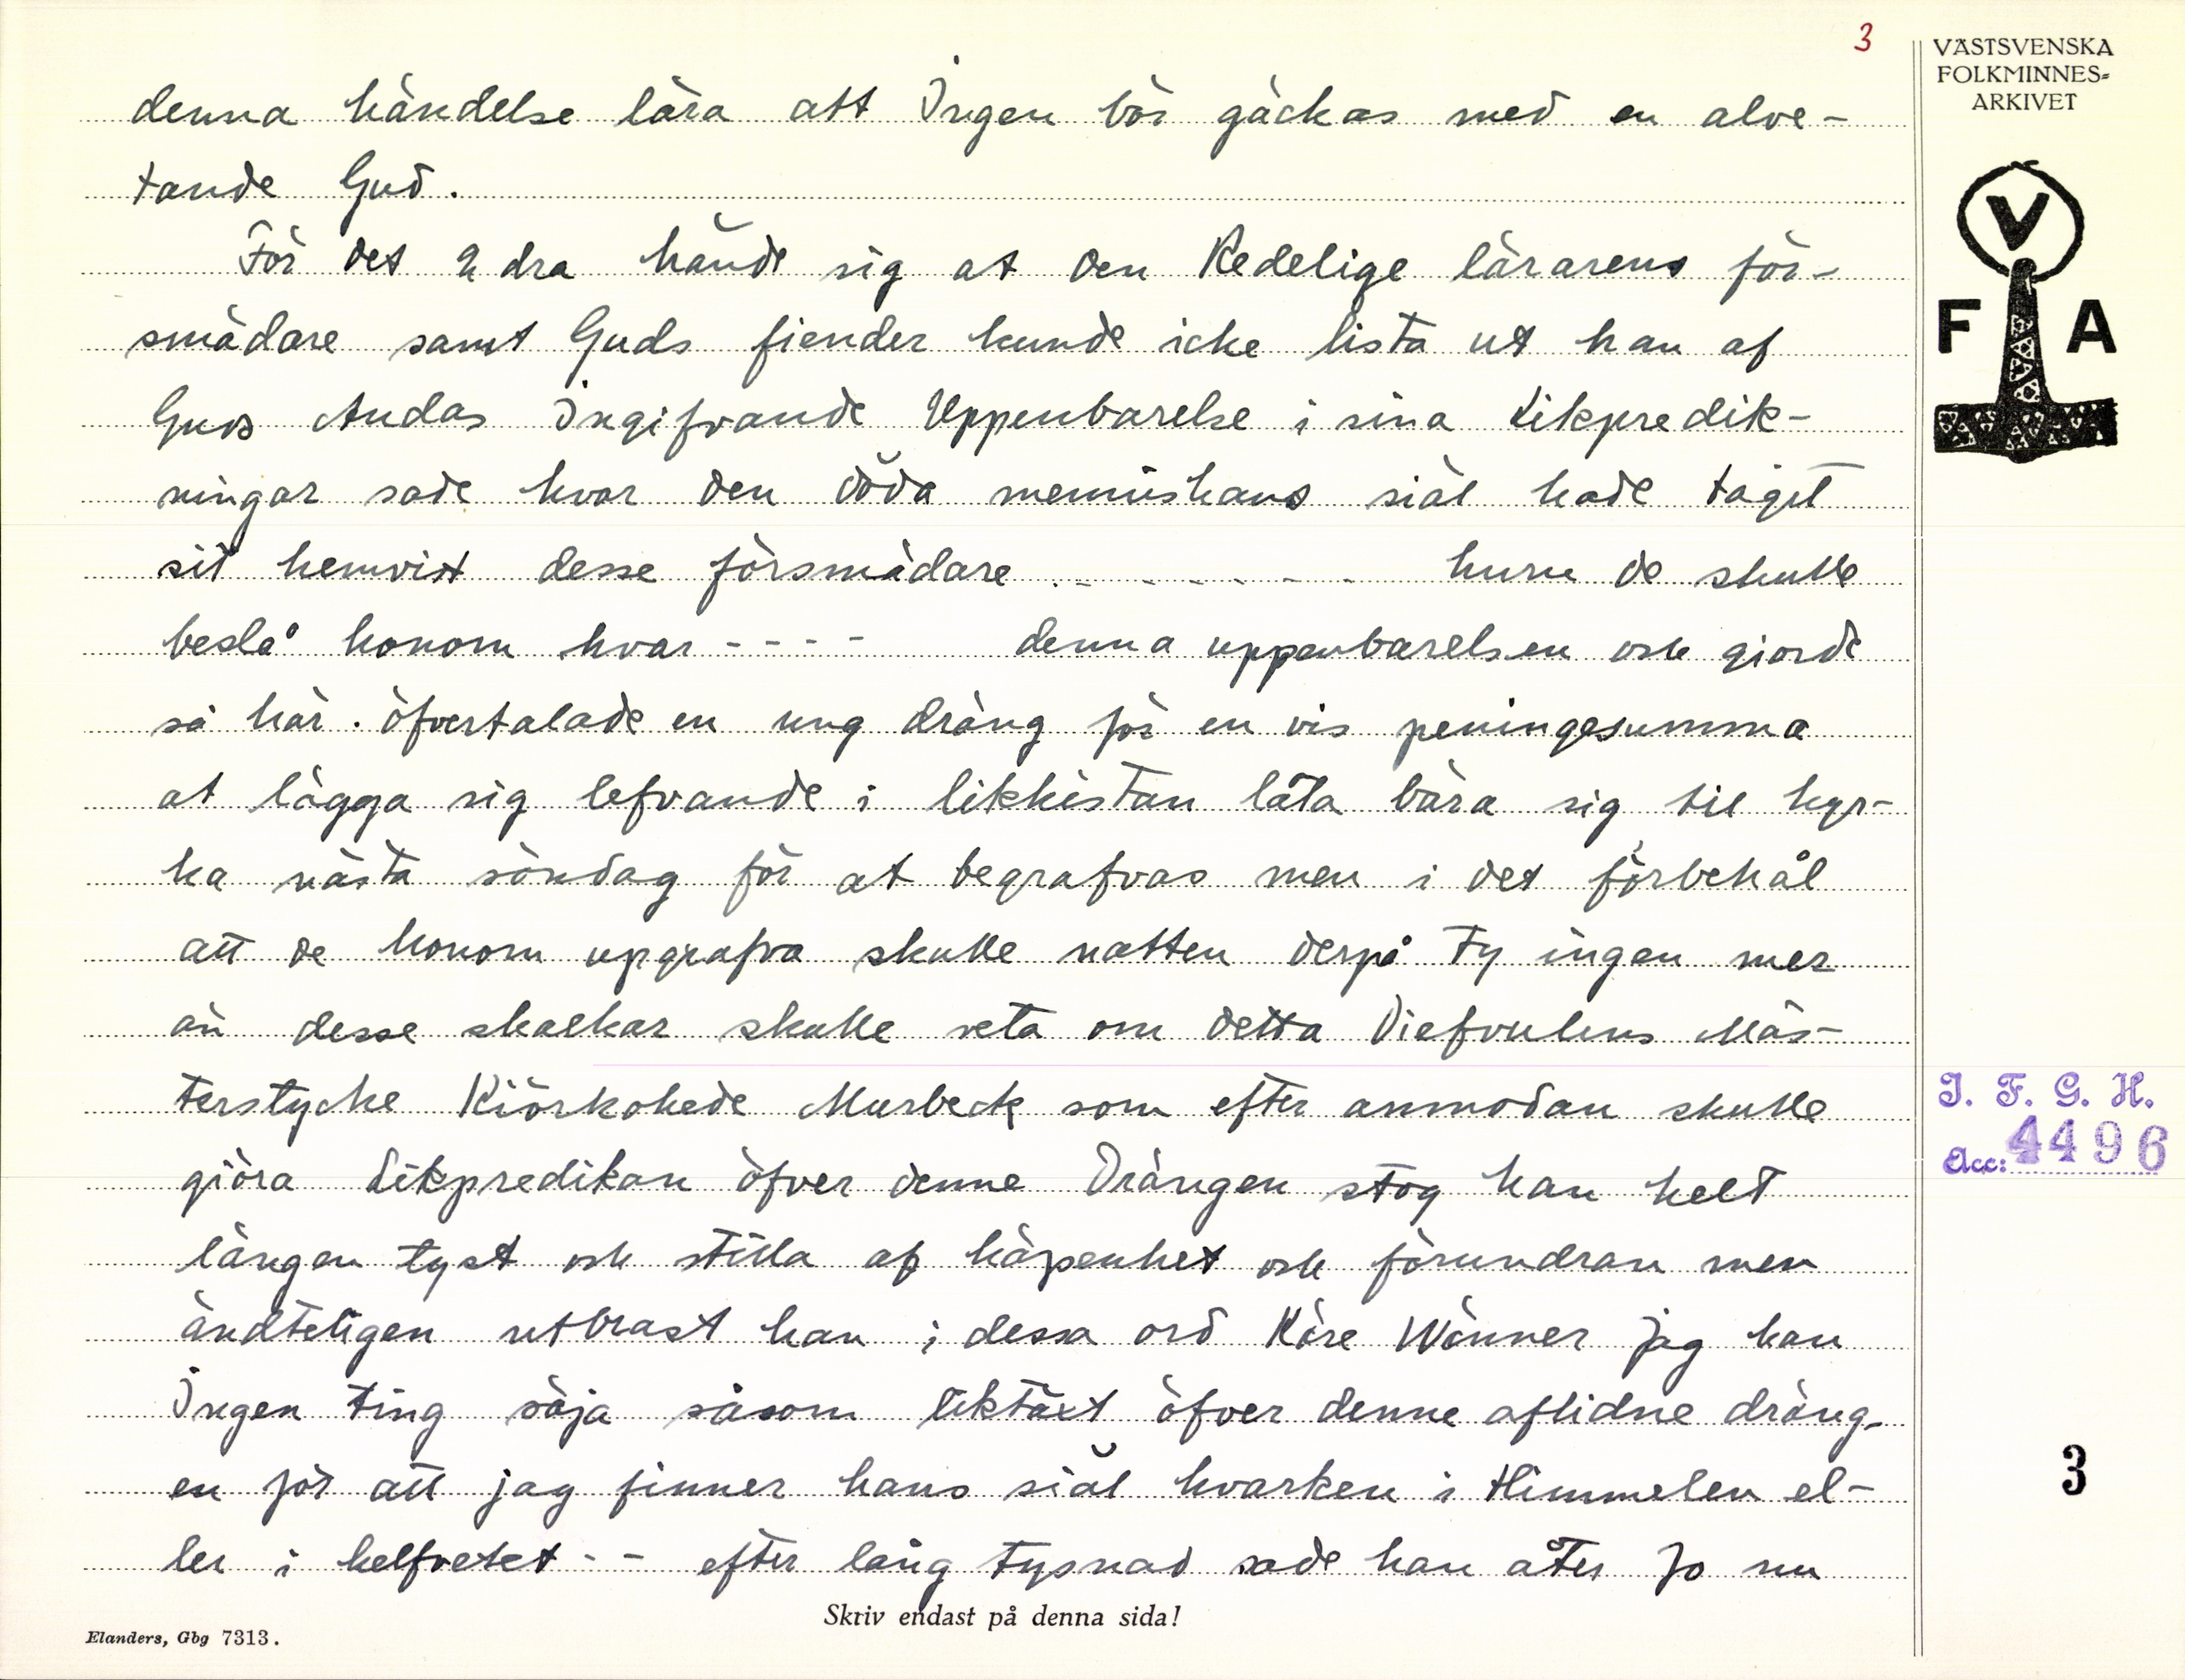 3
VÄSTSVENSKA
FOLKMINNES-
ARKIVET
V
F A
denna händelse lära att Ingen bör gäckas med en alve-
tande Gud.
För det 2dra hände sig at den Redelige lärarens för-
smädare samt Guds fiender kunde icke lista ut han af
Guds Andas Ingifvande Uppenbarelse i sina Likpredik-
ningar sade hvar den döda menniskans siäl hade taget
sit hemvist desse försmädare . - - - - - - - huru de skulle
beslå honom hvar - - - - denna uppenbarelsen och giorde
så här. öfvertalade en ung dräng för en vis peningesumma
at lägga sig lefvande i likkistan låta bära sig til kyr-
ka nästa söndag för at begrafvas men i det förbehål
att de honom upgrafva skulle natten derpå Ty ingen mer
än desse skalkar skulle veta om detta Diefvulens Mäs-
terstycke Kiörkohede Murbeck som efter anmodan skulle
giöra Likpredikan öfver denne Drängen stog han helt
längen tyst och stilla af häpenhet och förundran men
ändteligen utbrast han i dessa ord Käre Wänner jag kan
Ingen ting säja såsom liktäxt öfver denne aflidne dräng-
en för att jag finner hans siäl hvarken i Himmelen el-
ler i helfvetet - - efter lång tysnad sade han åter Jo nu
I. F. G. H.
Acc: 4496
3
Skriv endast på denna sida!
Elanders, Gbg 7313.